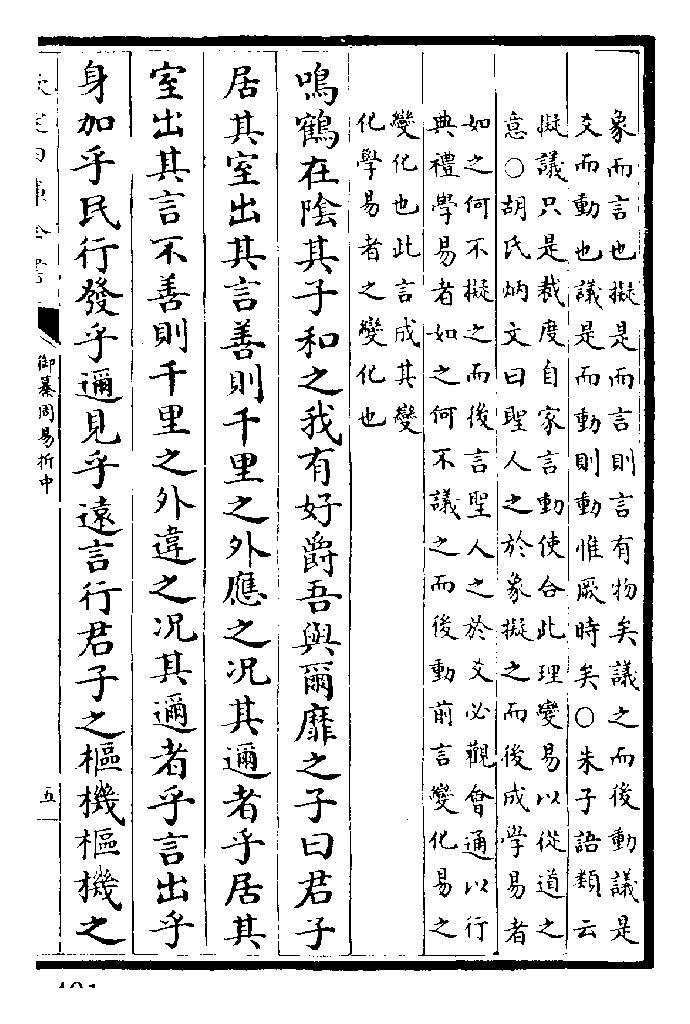 象而言也擬是而言則言有物矣議之而後動議是
爻而動也議是而動則動惟厥時矣○朱子語類云
擬議只是裁度自家言動使合此理變易以從道之
意○胡氏炳文曰聖人之於象擬之而後成學易者
如之何不擬之而後言聖人之於爻必觀會通以行
典禮學易者如之何不議之而後動前言變化易之
變化也此言成其變
化學易者之變化也
鳴鶴在陰其子和之我有好爵吾與爾靡之子曰君子
居其室出其言善則千里之外應之況其邇者乎居其
室出其言不善則千里之外違之況其邇者乎言出乎
身加乎民行發乎邇見乎遠言行君子之樞機樞機之
御纂周易折中
五